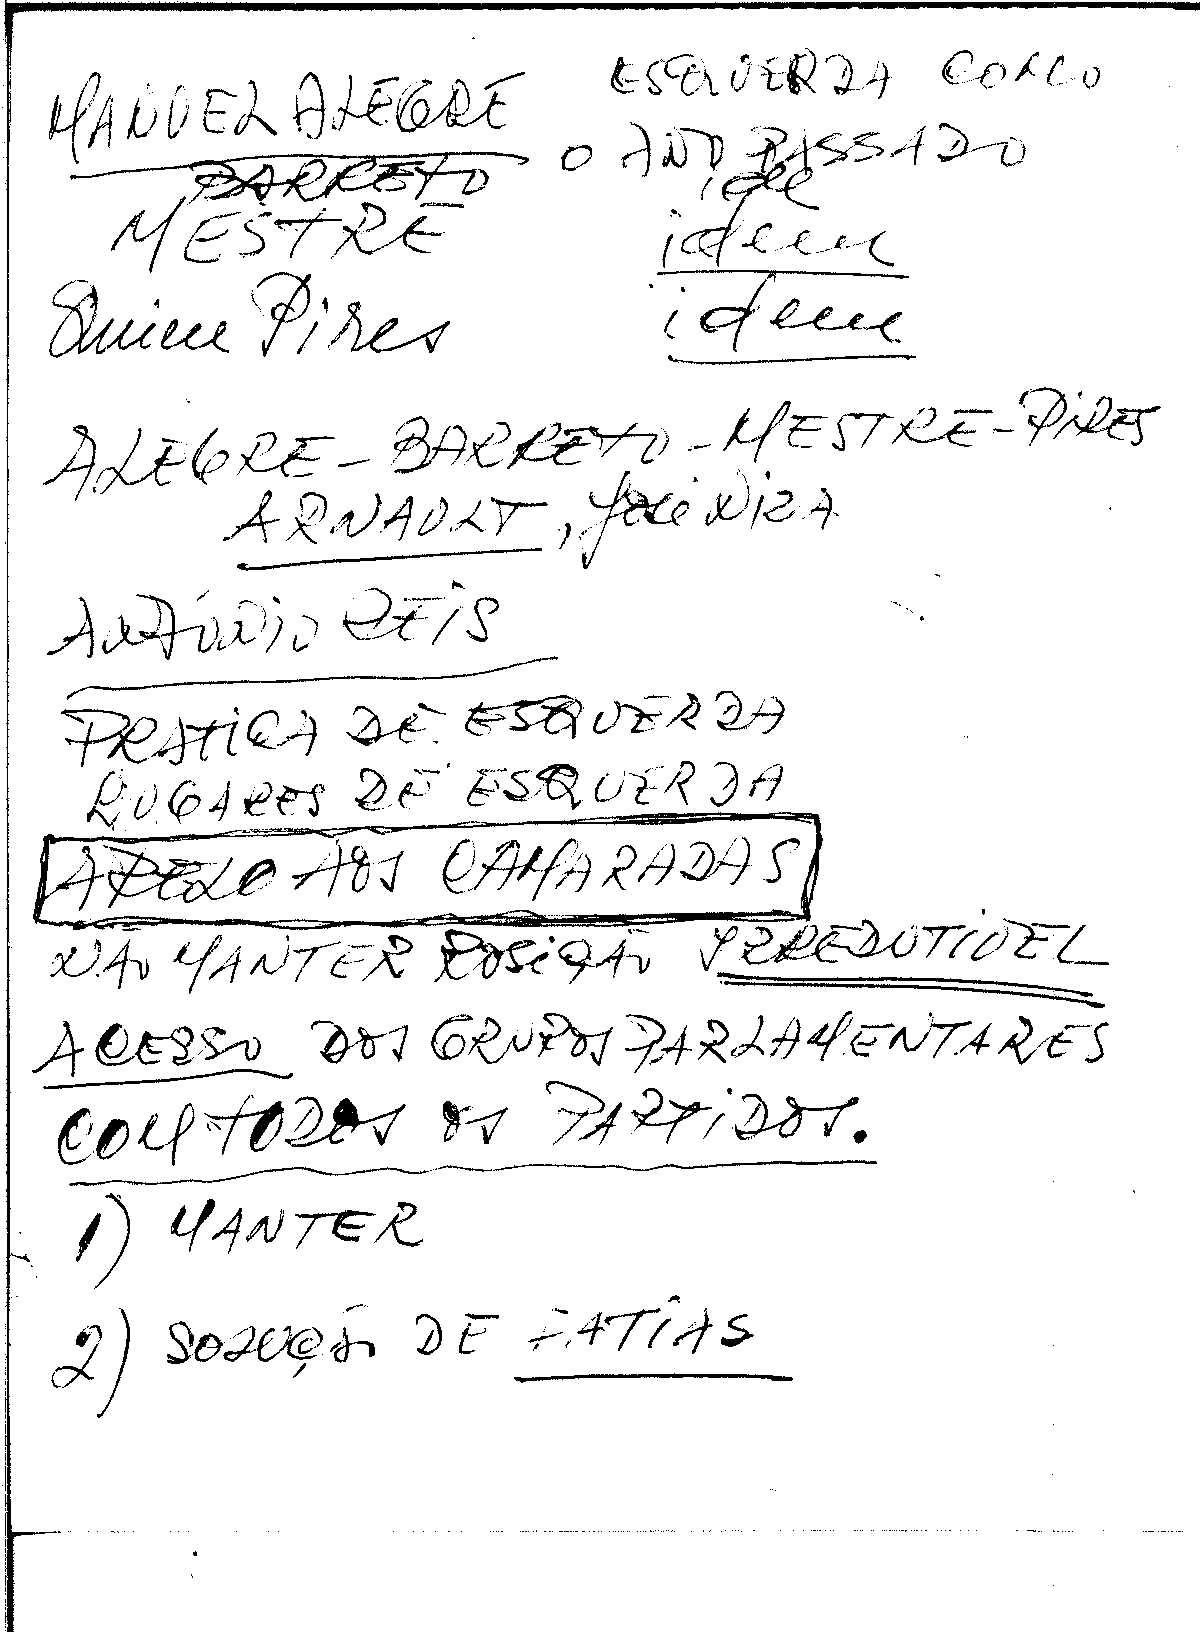 MANUEL ALEGRE ESQUERDA COMO
O ANO PASSADO
BARRETO ide
MESTRE idem
Pires idem
ALEGRE - BARRETO - MESTRE - PIRES
ARNAULT, José NIZA
ANTÓNIO REIS
PRATICA DE ESQUERDA
LUGARES DE ESQUERDA
APELO AOS CAMARADAS
NÃO MANTER POSIÇÃO IRREDUTIVEL
ACESSO DOS GRUPOS PARLAMENTARES
COM TODOS OS PARTIDOS.
1) MANTER
2) SOLUÇÃO DE FATIAS